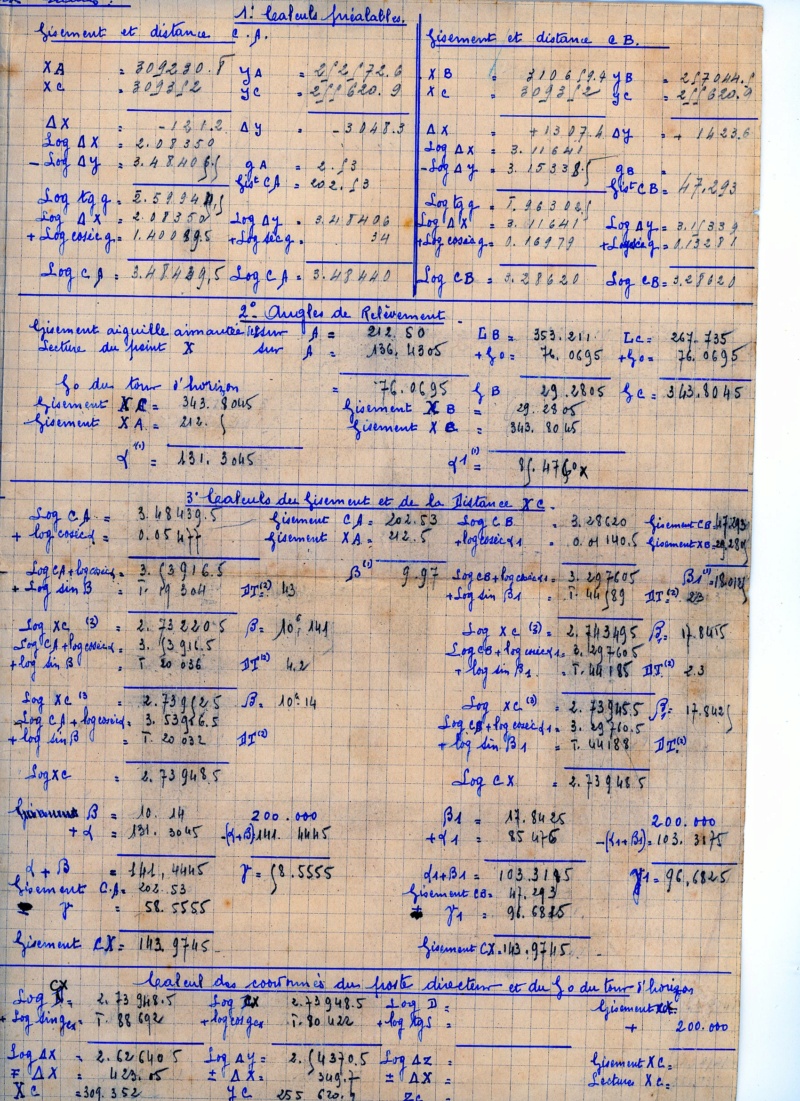 1º Calculs préalables.
Gisement et distance C.A.
XA = 309230.8 YA = 252572.6
XC = 309352 YC = 255620.9
ΔX = -121.2 ΔY = -3048.3
Log ΔX = 2.08350
- Log ΔY = 3.48406 gA = 2.53
Gist CA = 202.53
Log ΔX = 2.08350 Log ΔY = 3.48406
+ Log coséc g = 1.40089.5 + Log séc g = 34
Log CA = 3.48439,5 Log CA = 3.48440
Gisement et distance CB.
XB = 310659.4 YB = 257044.5
XC = 309352 YC = 255620.9
ΔX = +1307.4 ΔY = + 1423.6
Log ΔX = 3.11641
- Log ΔY = 3.15338 gB =
Gist CB = 47.293
Log ΔX = 3.11641 Log ΔY = 3.15339
+ Log coséc g = 0.16979 + Log séc g = 0.13281
Log CB = 3.28620 Log CB = 3.28620
2º Angles de Relèvement
Gisement aiguille aimantée sur A = 212.50 LB = 353.211 LC = 267.735
Lecture du point X sur A = 136.4305 +G0 = 76.0695 +G0 = 76.0695
G0 du tour d'horizon = 76.0695 GB 29.2805 GC = 343.8045
Gisement XC = 343.8045 Gisement XB = 29.2805
Gisement XA = 212.5 Gisement XC = 343.8045
α(1) = 131.3045 α1(1) = 85.4760
3º Calculs du Gisement et de la Distance XC.
Log CA = 3.48439.5 Gisement CA = 202.53 Log CB = 3.28620 Gisement CB = 47.293
+ log coséc α = 0.05477 Gisement XA = 212.5 + log coséc α1 = 0.01140.5 Gisement XB = 29.2805
Log CA + log coséc α = 3.53916.5 β(1) 9.97 Log CB + log coséc α1 = 3.297605 β1(1) = 18.0125
+ Log sin β = T.19304 DT(2) 43 + Log sin β1 = T.44589 DT(2) 23
Log XC (3) = 2.73220 5 β = 10G.141 Log XC (3) = 2.743495 β1 = 17.8455
Log CA + log coséc α = 3.53916.5 Log CB + log coséc α1 = 3.297605
+ log sin β = T.20036 DT(2) 4.2 + log sin β1 = T.44185 DT(2) 2.3
Log XC (3) = 2.73952.5 β = 10G.14 Log XC (3) = 2.73945.5 β1 = 17.8425
Log CA + log coséc α = 3.53916.5 Log CB + log coséc α1 = 3.29760.5
+ log sin β = T.20032 DT(2) + log sin β1 = T.44188 DT(2)
Log XC = 2.73948.5 Log CX = 2.73948.5
β = 10.14 200.000 β1 = 17.8425 200.000
+ α = 131.3045 -(α+β) = 141.4445 + α1 = 85 476 -(α1+β1) = 103.3175
α + β = 141,4445 γ = 58.5555 α1+β1 = 103.3185 γ1 = 96,6825
Gisement C.A = 202.53 Gisement CB = 47.293
γ = 58.5555 γ1 = 96.6825
Gisement CX = 143.9745 Gisement CX = 143.9745
Calcul des coordonnées du poste directeur et du G0 du tour d'horizon
Log CX = 2.73948.5 Log CX 2.73948.5 Log D = Gisement
+ Log sin gcx = T.88692 + log cos gcx T.80422 + log tg S = + 200.000
Log ΔX = 2.62640 5 Log ΔY = 2.54370.5 Log ΔZ = Gisement XC =
∓ ΔX = 423.05 ± ΔX = 349.7 ± ΔX = Lecture XC =
XC = 309.352 YC 255 620.9 ZC =